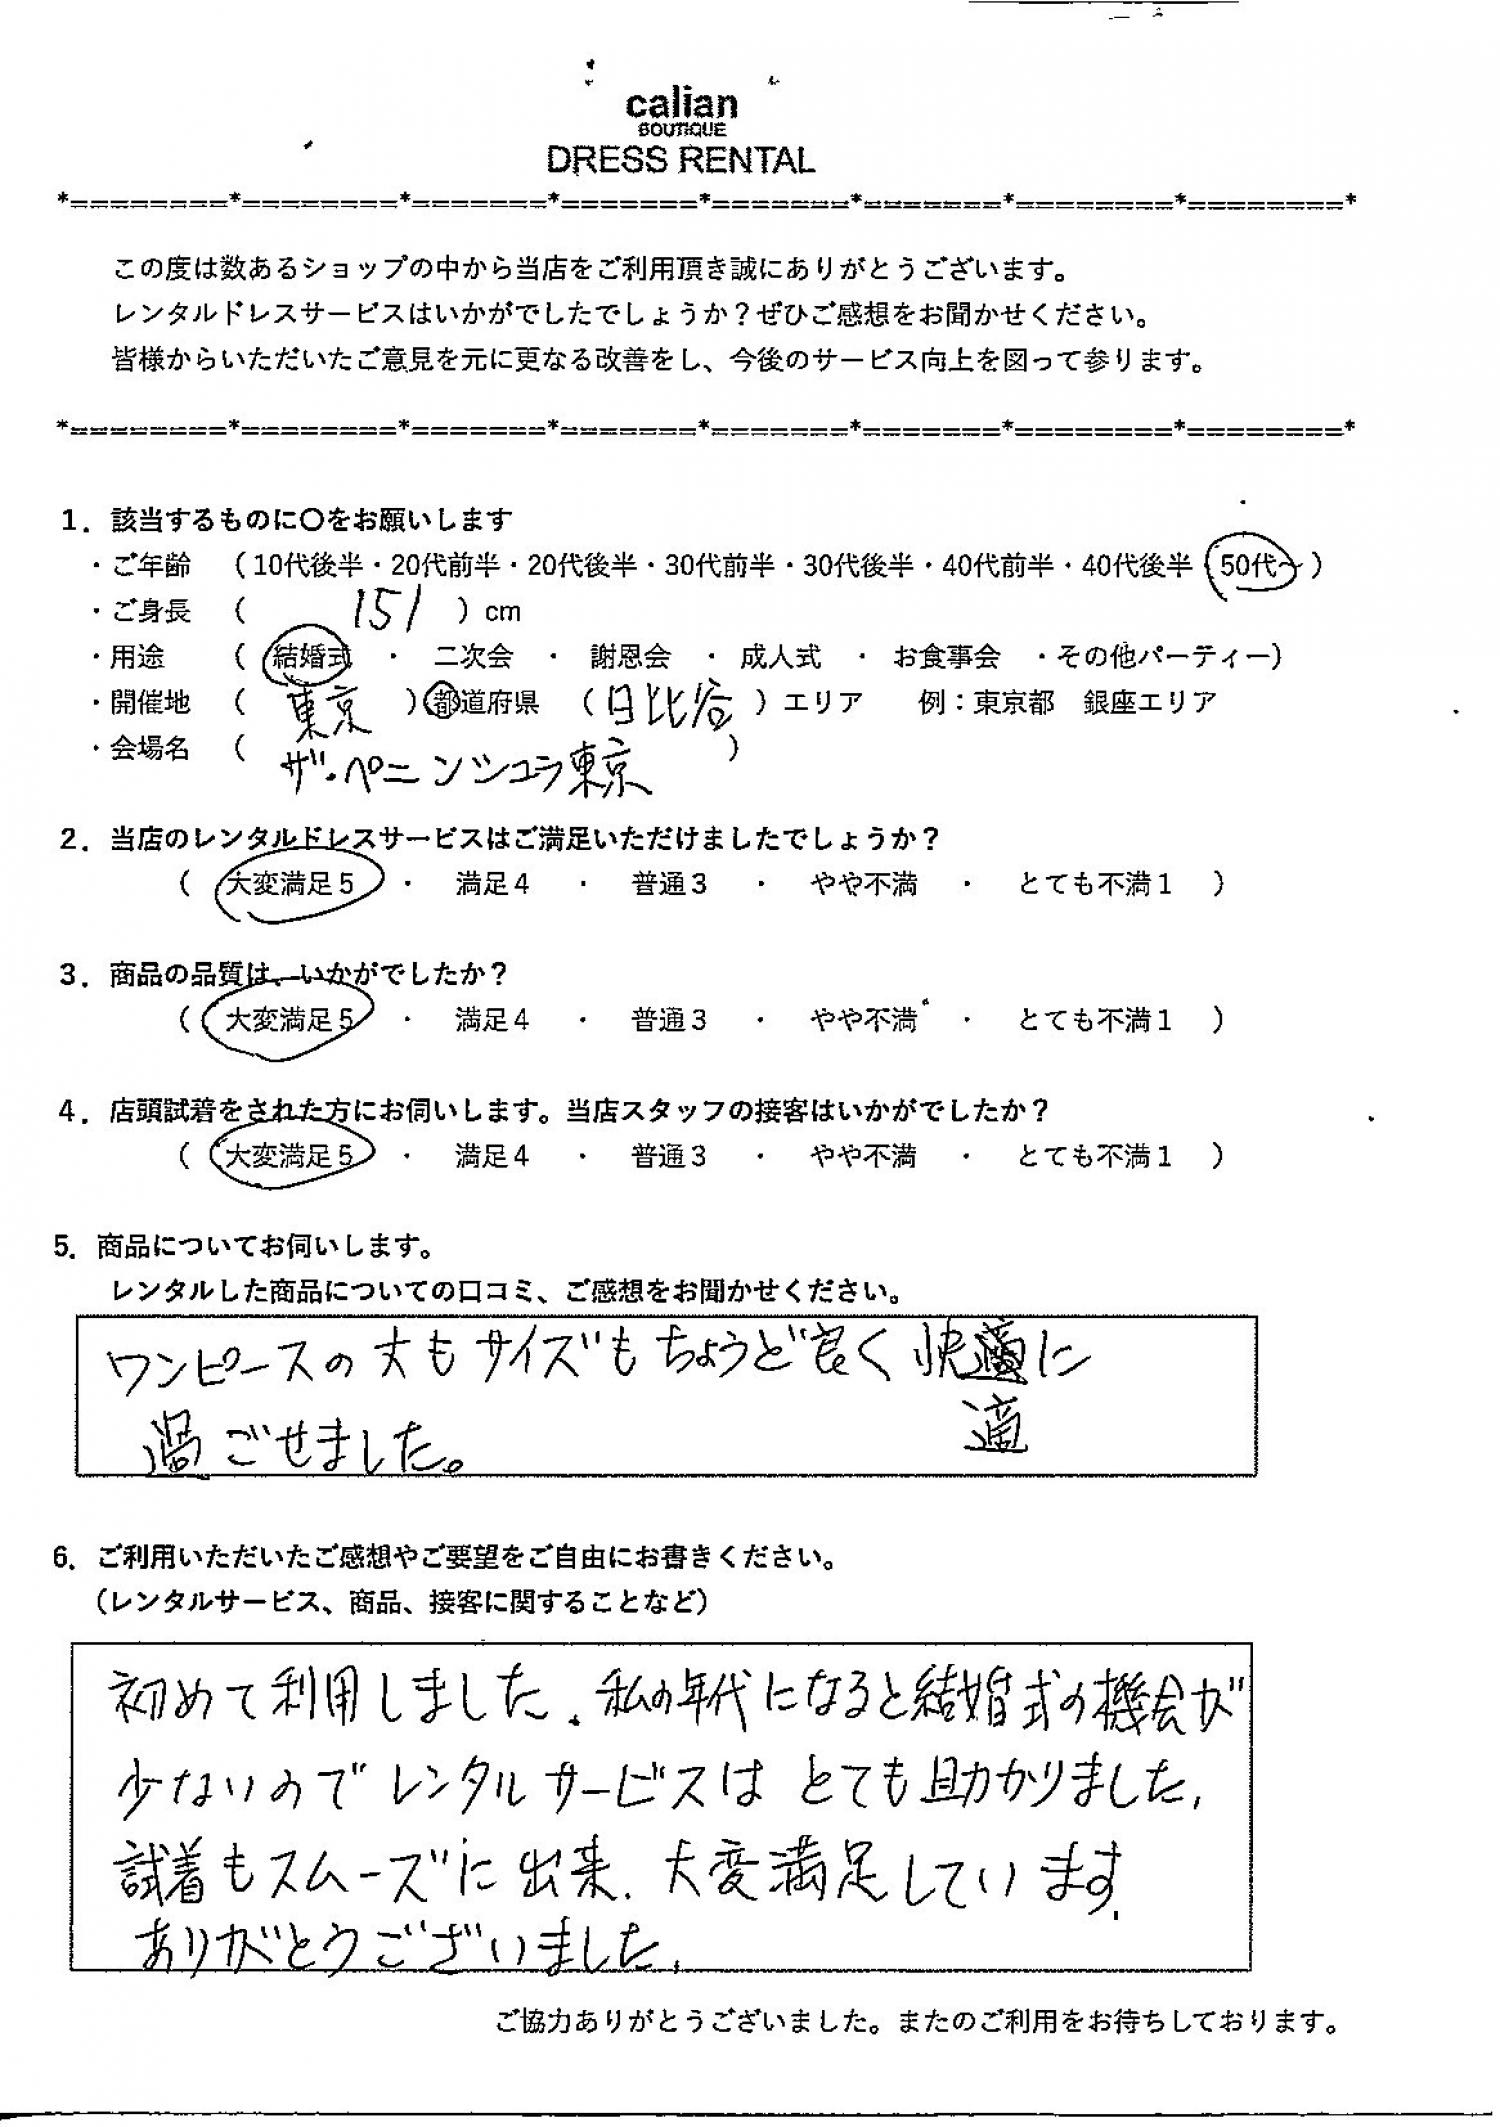 calian
BOUTIQUE
DRESS RENTAL
*========*========*=======*=======*=======*=======*========*========*
この度は数あるショップの中から当店をご利用頂き誠にありがとうございます。
レンタルドレスサービスはいかがでしたでしょうか？ぜひご感想をお聞かせください。
皆様からいただいたご意見を元に更なる改善をし、今後のサービス向上を図って参ります。
*========*========*=======*=======*=======*=======*========*========*
1．該当するものに〇をお願いします
・ご年齢 （10代後半・20代前半・20代後半・30代前半・30代後半・40代前半・40代後半・50代〜）
・ご身長 （ 151 ）cm
・用途 （ 結婚式 ・ 二次会 ・ 謝恩会 ・ 成人式 ・ お食事会 ・その他パーティー）
・開催地 （ 東京 ）都道府県 （日比谷）エリア 例：東京都 銀座エリア
・会場名 （ ザ・ペニンシュラ東京 ）
2．当店のレンタルドレスサービスはご満足いただけましたでしょうか？
（ 大変満足5 ・ 満足4 ・ 普通3 ・ やや不満 ・ とても不満1 ）
3．商品の品質は、いかがでしたか？
（ 大変満足5 ・ 満足4 ・ 普通3 ・ やや不満 ・ とても不満1 ）
4．店頭試着をされた方にお伺いします。当店スタッフの接客はいかがでしたか？
（ 大変満足5 ・ 満足4 ・ 普通3 ・ やや不満 ・ とても不満1 ）
5．商品についてお伺いします。
レンタルした商品についての口コミ、ご感想をお聞かせください。
ワンピースの丈もサイズもちょうど良く快適に
適
過ごせました。
6．ご利用いただいたご感想やご要望をご自由にお書きください。
（レンタルサービス、商品、接客に関することなど）
初めて利用しました。私の年代になると結婚式の機会が
少ないのでレンタルサービスはとても助かりました。
試着もスムーズに出来、大変満足しています。
ありがとうございました。
ご協力ありがとうございました。またのご利用をお待ちしております。